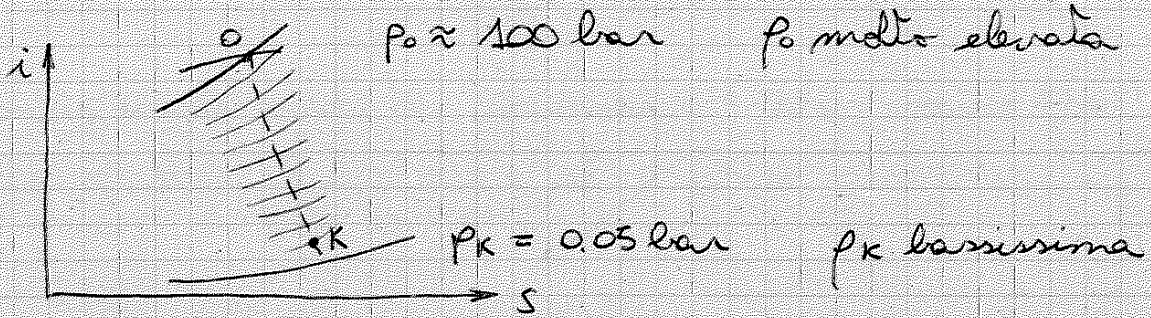 i O p₀ ≈ 100 bar ρ₀ molto elevata
K p_K = 0.05 bar ρ_K bassissima
S